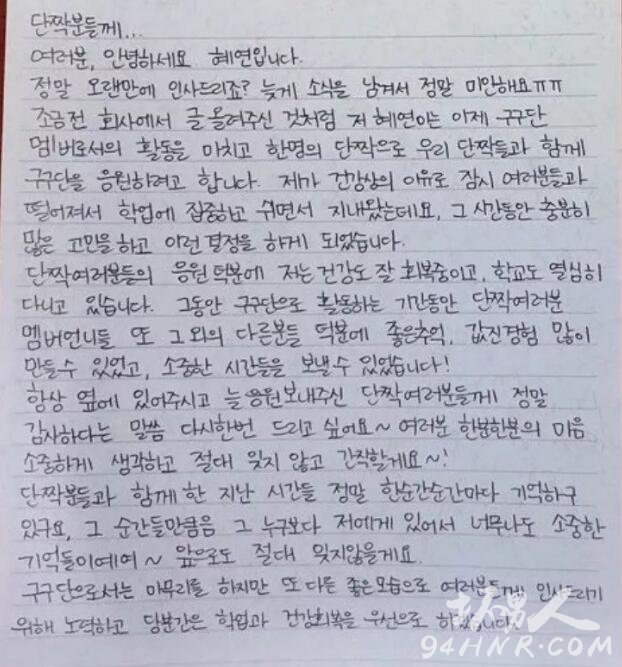 단짝분들께...
여러분, 안녕하세요 혜연입니다.
정말 오랜만에 인사드리죠? 늦게 소식을 남겨서 정말 미안해요ㅠㅠ
조금전 회사에서 글 올려주신 것처럼 저 혜연이는 이제 구구단
멤버로서의 활동을 마치고 한명의 단짝으로 우리 단짝들과 함께
구구단을 응원하려고 합니다. 제가 건강상의 이유로 잠시 여러분들과
떨어져서 학업에 집중하고 쉬면서 지내왔는데요, 그 시간동안 충분히
많은 고민을 하고 이런 결정을 하게 되었습니다.
단짝여러분들의 응원 덕분에 저는 건강도 잘 회복중이고, 학교도 열심히
다니고 있습니다. 그동안 구구단으로 활동하는 기간동안 단짝여러분
멤버언니들 또 그 외의 다른분들 덕분에 좋은추억, 값진경험 많이
만들수 있었고, 소중한 시간들을 보낼수 있었습니다!
항상 옆에 있어주시고 늘 응원보내주신 단짝여러분들께 정말
감사하다는 말씀 다시한번 드리고 싶어요~ 여러분 한분한분의 마음
소중하게 생각하고 절대 잊지 않고 간직할게요~!
단짝분들과 함께 한 지난 시간들 정말 한순간순간마다 기억하구
있구요, 그 순간들만큼은 그 누구보다 저에게 있어서 너무나도 소중한
기억들이예여~ 앞으로도 절대 잊지않을게요.
구구단으로서는 마무리를 하지만 또 다른 좋은모습으로 여러분들께 인사드리기
위해 노력하고 당분간은 학업과 건강회복을 우선으로 하겠습니다.
94HNR.COM